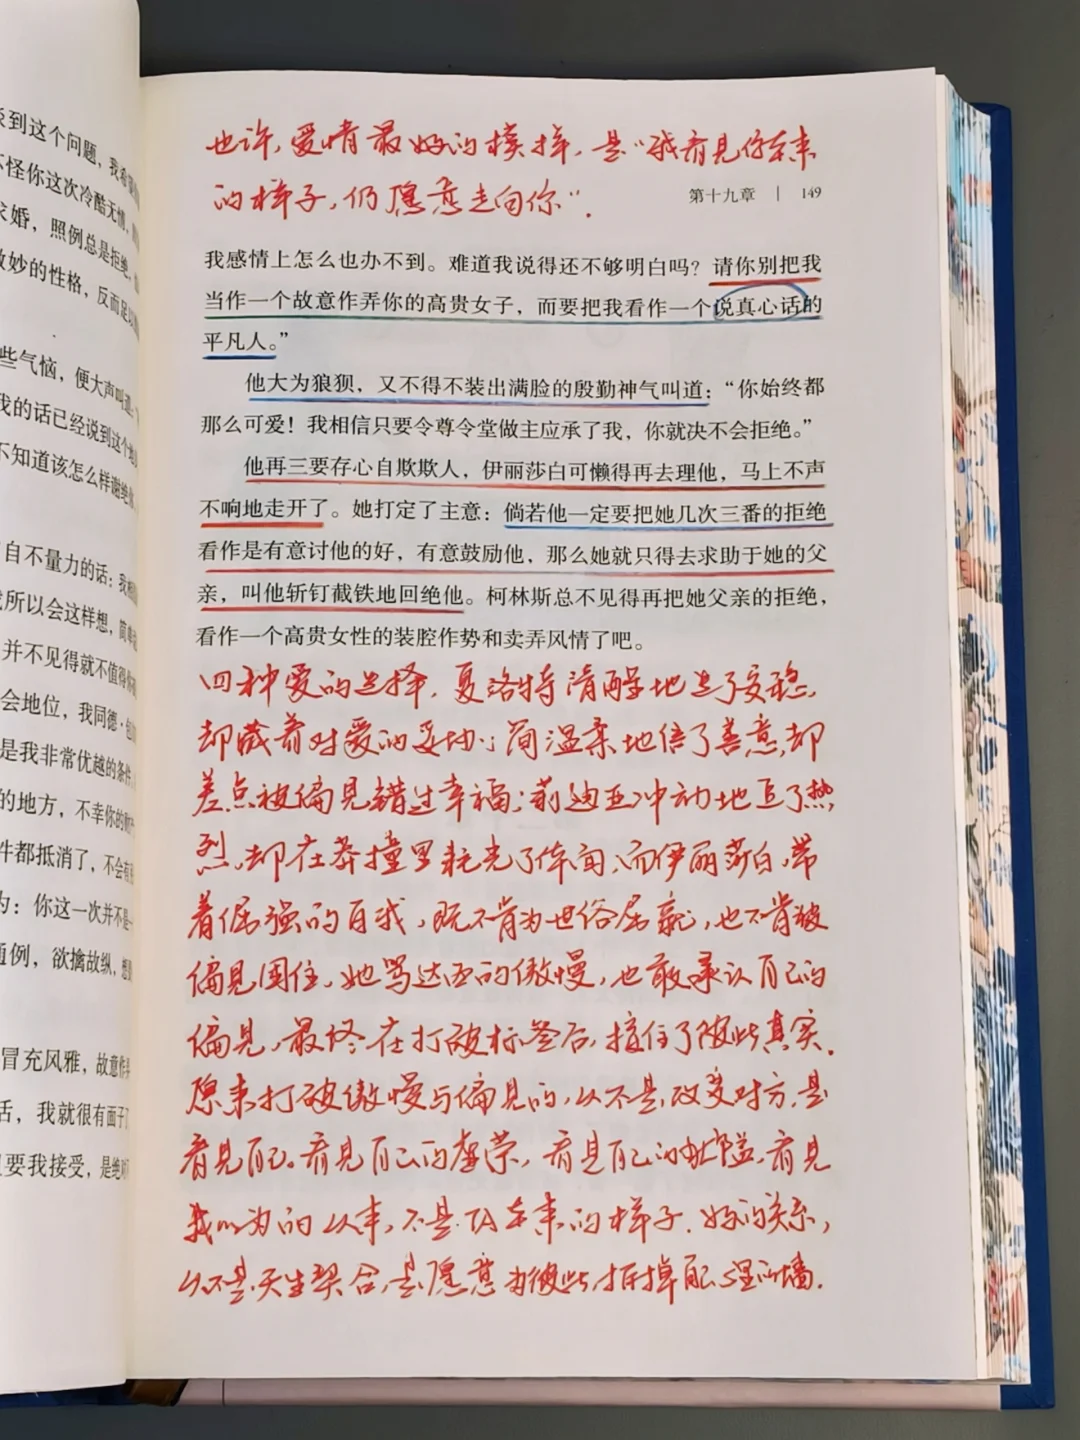 到这个问题，我
怪你这次冷酷无情，
求婚，照例总是拒绝，
妙的性格，反而足以
些气恼，便大声叫道：
我的话已经说到这个地
不知道该怎么样谢绝你
自不量力的话：我
所以会这样想，简单
并不见得就不值得你
会地位，我同德·包
是我非常优越的条件
的地方，不幸你的
件都抵消了，不会有
为：你这一次并不是一
通例，欲擒故纵，想
冒充风雅，故意作弄
话，我就很有面子了
要我接受，是绝对
也许，爱情最好的模样，是“我看见你本来
的样子，仍愿意走向你”.
第十九章 | 149
我感情上怎么也办不到。难道我说得还不够明白吗？请你别把我
当作一个故意作弄你的高贵女子，而要把我看作一个说真心话的
平凡人。”
他大为狼狈，又不得不装出满脸的殷勤神气叫道：“你始终都
那么可爱！我相信只要令尊令堂做主应承了我，你就决不会拒绝。”
他再三要存心自欺欺人，伊丽莎白可懒得再去理他，马上不声
不响地走开了。她打定了主意：倘若他一定要把她几次三番的拒绝
看作是有意讨他的好，有意鼓励他，那么她就只得去求助于她的父
亲，叫他斩钉截铁地回绝他。柯林斯总不见得再把她父亲的拒绝，
看作一个高贵女性的装腔作势和卖弄风情了吧。
四种爱的选择，夏洛特清醒地选了安稳，
却藏着对爱的妥协；简温柔地信了善意，却
差点被偏见错过幸福；莉迪亚冲动地追了热
烈，却在莽撞里耗光了体面，而伊丽莎白，带
着倔强的自我，既不肯为世俗屈就，也不肯被
偏见困住，她骂达西的傲慢，也敢承认自己的
偏见，最终在打破标签后，接住了彼此真实.
原来打破傲慢与偏见的，从不是改变对方，是
看见自己。看见自己的虚荣，看见自己的狭隘，看见
我以为的以来，不是TA本来的样子. 好的关系，
从不是天生契合，是愿意为彼此，拆掉心里的墙.